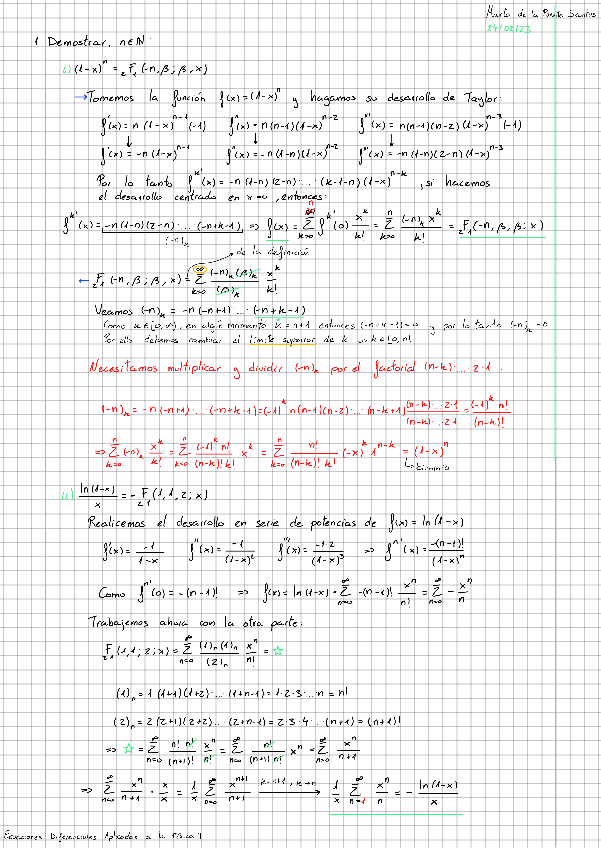 Marta de la Puente Santos
24/02/23
1 Demostrar, n∈ℕ:
i) (1-x)^n = ₂F₁(-n, β; β, x)
→ Tomemos la función f(x) = (1-x)^n y hagamos su desarrollo de Taylor:
f'(x) = n(1-x)^{n-1}(-1) f''(x) = n(n-1)(1-x)^{n-2} f'''(x) = n(n-1)(n-2)(1-x)^{n-3}(-1)
↓ ↓ ↓
f'(x) = -n(1-x)^{n-1} f''(x) = -n(1-n)(1-x)^{n-2} f'''(x) = -n(1-n)(2-n)(1-x)^{n-3}
Por lo tanto f^{k'}(x) = -n(1-n)(2-n)·...·(k-1-n)(1-x)^{n-k}, si hacemos
el desarrollo centrado en x=0, entonces:
f^{k'}(x) = -n(1-n)(2-n)·...·(-n+k-1) ⇒ f(x) = Σ_{k=0}^{n} f^{k'}(0) x^k/k! = Σ_{k=0}^{n} (-n)_k x^k/k! = ₂F₁(-n, β, β; x)
(-n)_k
de la definición
← ₂F₁(-n, β; β, x) = Σ_{k=0}^{∞} (-n)_k (β)_k/(β)_k x^k/k!
Veamos (-n)_k = -n(-n+1)...·(-n+k-1)
Como k∈[0,∞), en algún momento k=n+1 entonces (-n+k-1)=0 y por lo tanto (-n)_k=0
Por ello debemos cambiar el límite superior de k a k∈[0,n]
Necesitamos multiplicar y dividir (-n)_k por el factorial (n-k)·...2·1.
(-n)_k = -n(-n+1)·...·(-n+k-1) = (-1)^k n(n-1)(n-2)·...·(n-k+1) (n-k)·...2·1/(n-k)·...2·1 = (-1)^k n!/(n-k)!
⇒ Σ_{k=0}^{n} (-n)_k x^k/k! = Σ_{k=0}^{n} (-1)^k n!/(n-k)! k! x^k = Σ_{k=0}^{n} n!/(n-k)! k! (-x)^k 1^{n-k} = (1-x)^n
binomio
ii) ln(1-x)/x = -₂F₁(1,1,2;x)
Realicemos el desarrollo en serie de potencias de f(x) = ln(1-x)
f'(x) = -1/1-x f''(x) = -1/(1-x)² f'''(x) = -1·2/(1-x)³ ⇒ f^{n'}(x) = -(n-1)!/(1-x)^n
Como f^{n'}(0) = -(n-1)! ⇒ f(x) = ln(1-x) = Σ_{n=0}^{∞} -(n-1)! x^n/n! = Σ_{n=0}^{∞} - x^n/n
Trabajemos ahora con la otra parte:
₂F₁(1,1;2;x) = Σ_{n=0}^{∞} (1)_n (1)_n/(2)_n x^n/n! = ☆
(1)_n = 1(1+1)(1+2)·...·(1+n-1) = 1·2·3·...·n = n!
(2)_n = 2(2+1)(2+2)...·(2+n-1) = 2·3·4·...·(n+1) = (n+1)!
⇒ ☆ = Σ_{n=0}^{∞} n! n!/(n+1)! x^n/n! = Σ_{n=0}^{∞} n!/(n+1) n! x^n = Σ_{n=0}^{∞} x^n/n+1
⇒ Σ_{n=0}^{∞} x^n/n+1 · x/x = 1/x Σ_{n=0}^{∞} x^{n+1}/n+1 → 1/x Σ_{n=1}^{∞} x^n/n = - ln(1-x)/x
Ecuaciones Diferenciales Aplicadas a la Física